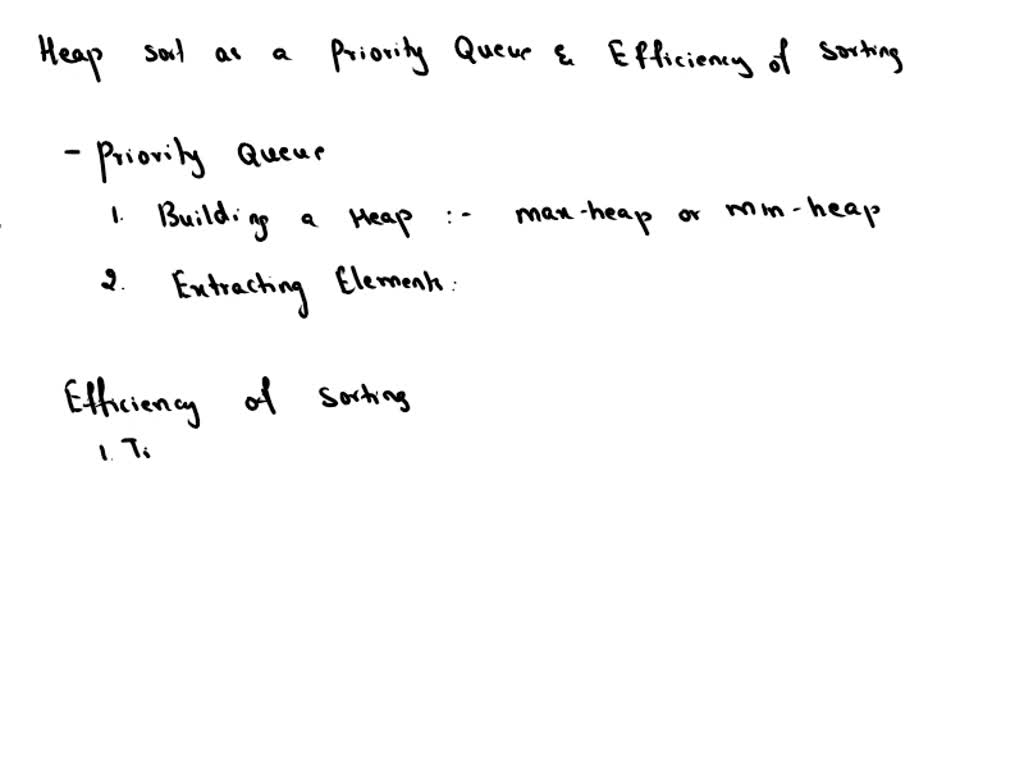 Heap sort as a Priority Queue & Efficiency of Sorting
- Priority Queue
1. Building a Heap :- max-heap or min-heap
2. Extracting Elements:
Efficiency of Sorting
1. Ti